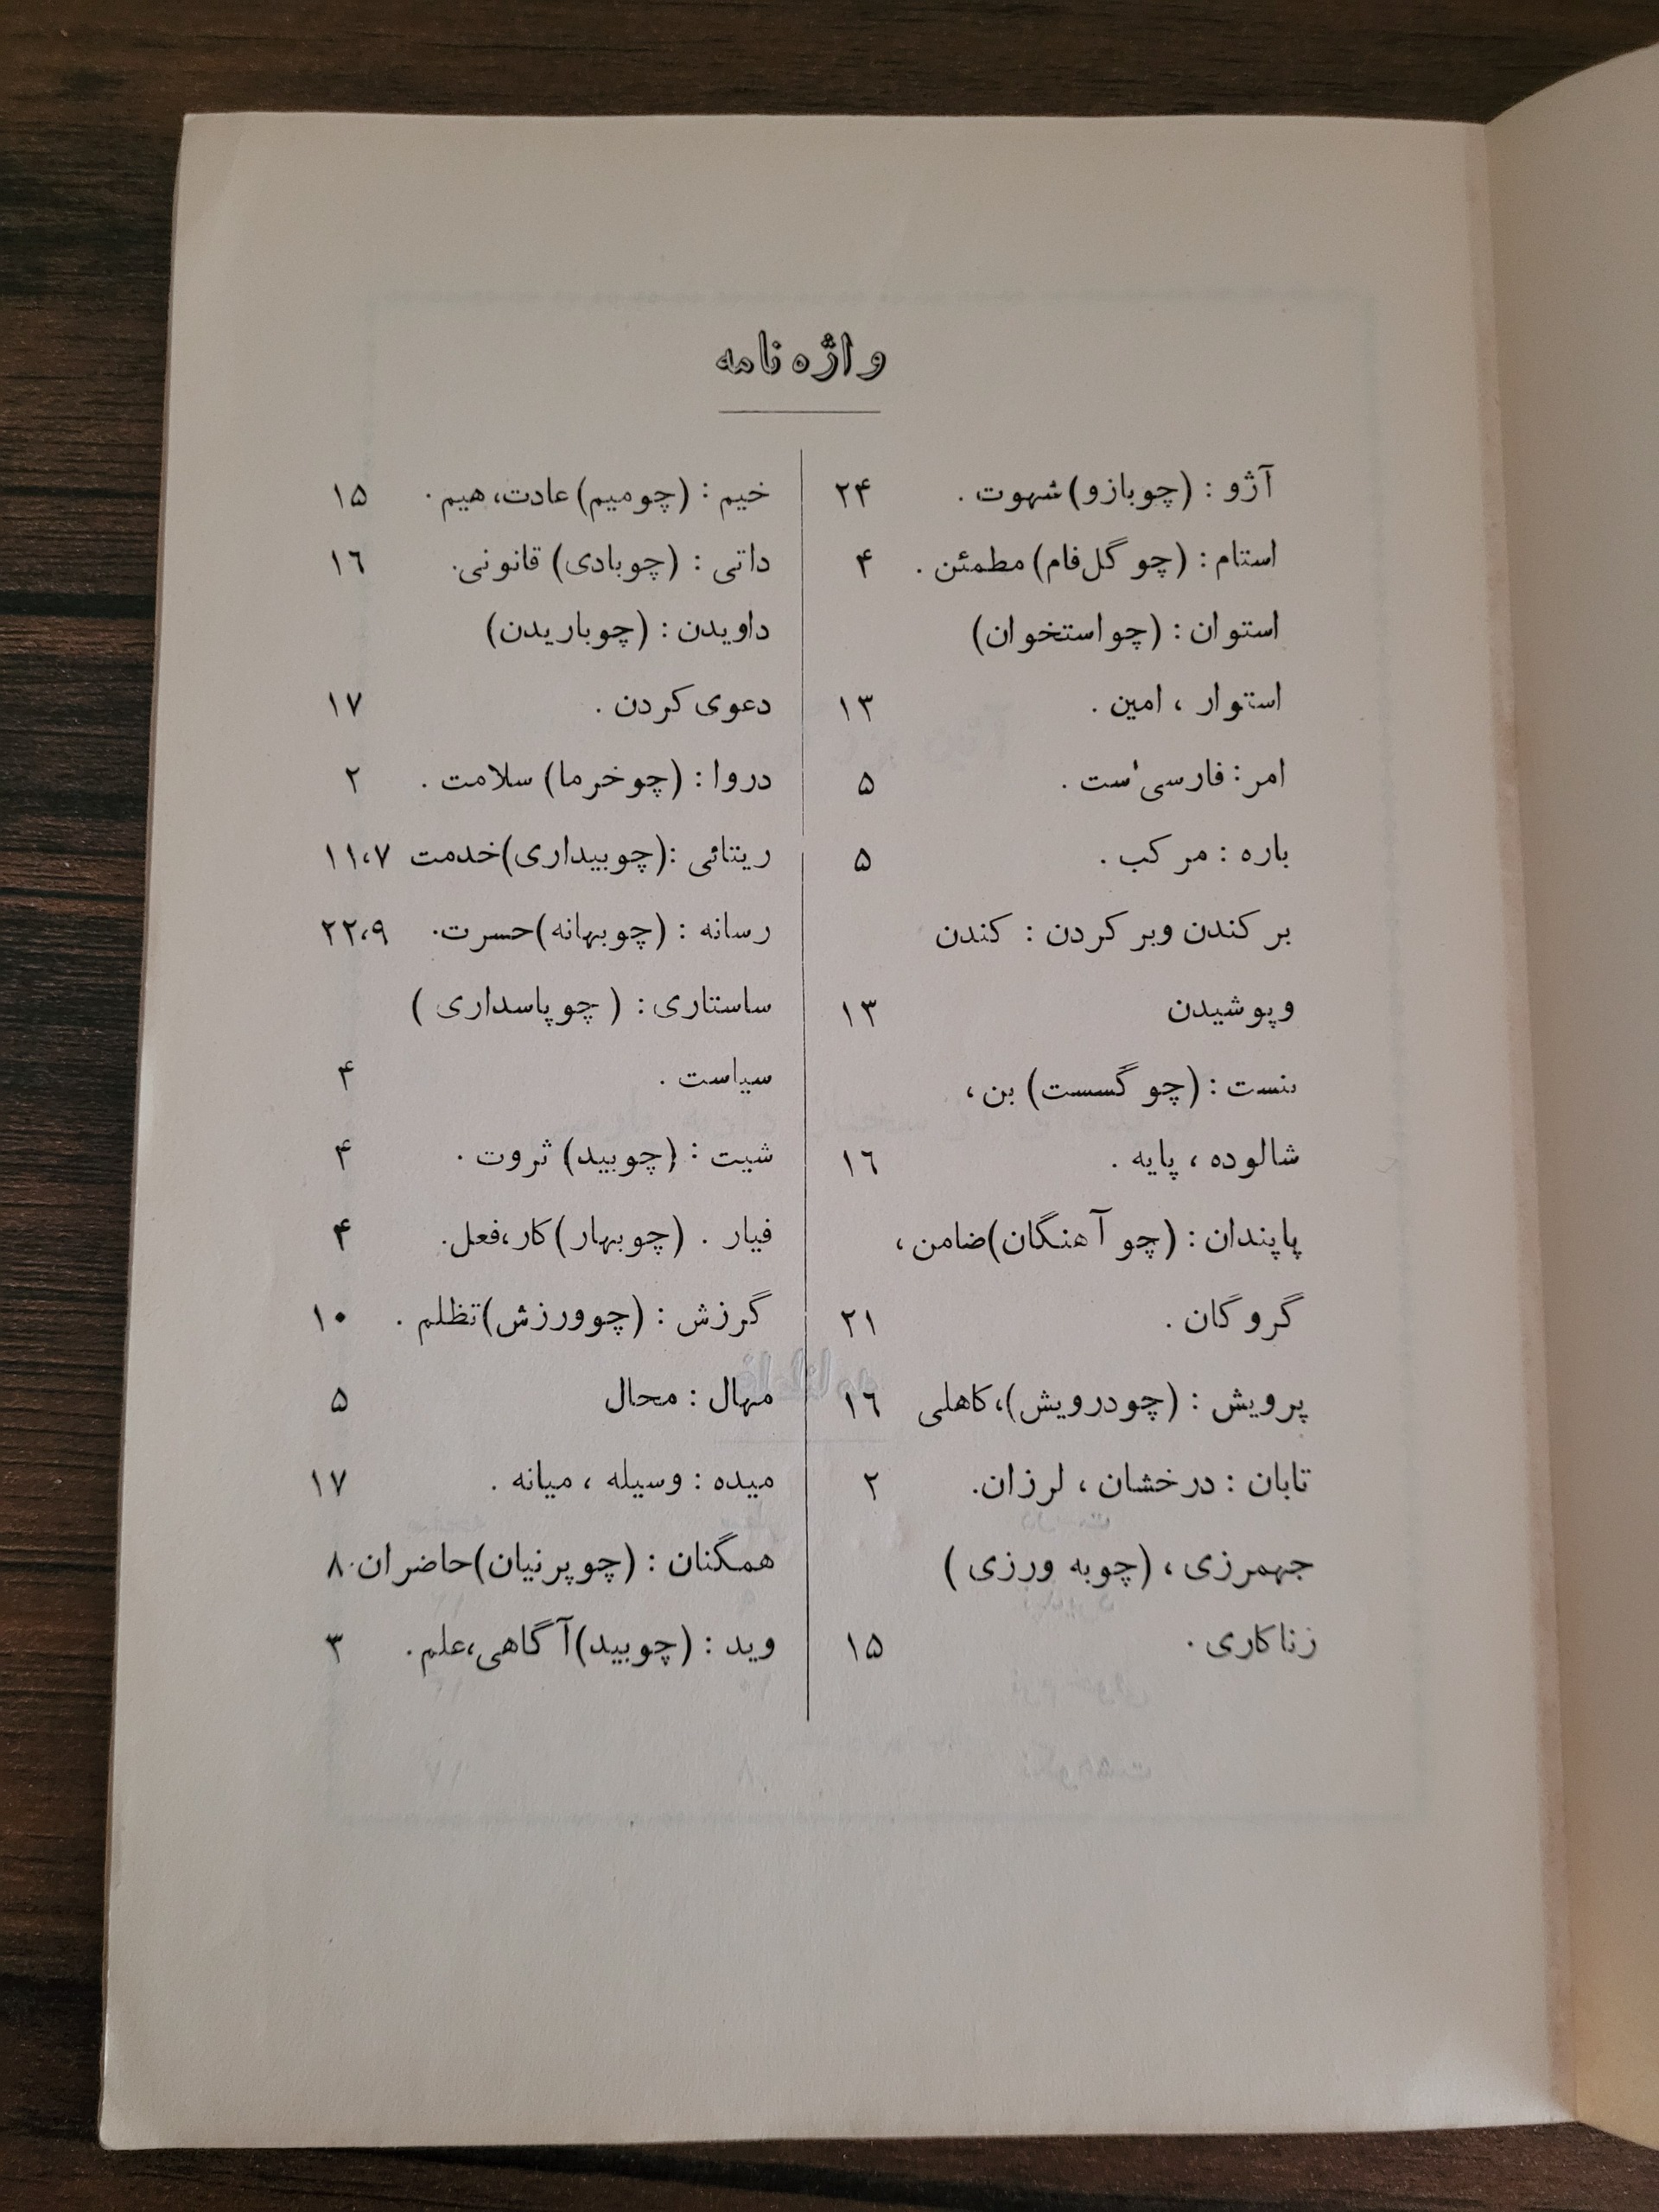 واژه‌نامه
آژو : (چوبازو) شهوت . ۲۴
استام : (چو گل‌فام) مطمئن . ۴
استوان : (چو استخوان)
استوار ، امین . ۱۳
امر : فارسی‌است . ۵
باره : مرکب . ۵
بر کندن وبر کردن : کندن
وپوشیدن ۱۳
بنست : (چو گسست) بن ،
شالوده ، پایه . ۱۶
پاپندان : (چو آهنگان) ضامن ،
گروگان . ۲۱
پرویش : (چودرویش)،کاهلی ۱۶
تابان : درخشان ، لرزان. ۲
جهمرزی ، (چوبه ورزی )
زناکاری . ۱۵
خیم : (چومیم) عادت، هیم . ۱۵
داتی : (چوبادی) قانونی. ۱۶
داویدن : (چوباریدن)
دعوی کردن . ۱۷
دروا : (چوخرما) سلامت . ۲
ریتائی :(چوبیداری)خدمت ۱۱،۷
رسانه : (چوبهانه)حسرت. ۲۲،۹
ساستاری : ( چوپاسداری )
سیاست . ۴
شیت : (چوبید) ثروت . ۴
فیار . (چوبهار)کار،فعل. ۴
گرزش : (چوورزش)تظلم . ۱۰
مهال : محال ۵
میده : وسیله ، میانه . ۱۷
همگنان : (چوپرنیان)حاضران. ۸
وید : (چوبید)آگاهی،علم. ۳